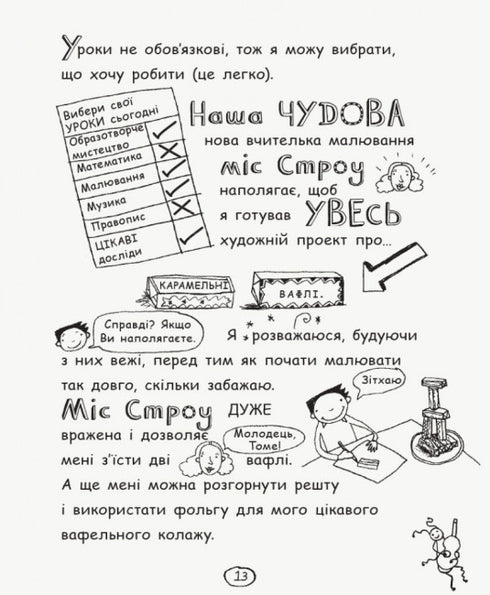 Уроки не обов'язкові, тож я можу вибрати,
що хочу робити (це легко).
Вибери свої
УРОКИ сьогодні
Образотворче
мистецтво
Математика
Малювання
Музика
Правопис
ЦІКАВІ
досліди
Наша ЧУДОВА
нова вчителька малювання
міс Строу
наполягає, щоб
я готував УВЕСЬ
художній проєкт про...
КАРАМЕЛЬНІ
ВАФЛІ.
Справді? Якщо
Ви наполягаєте.
Я розважаюся, будуючи
з них вежі, перед тим як почати малювати
так довго, скільки забажаю.
Зітхаю
Міс Строу ДУЖЕ
вражена і дозволяє
Молодець,
Томе!
мені з'їсти дві вафлі.
А ще мені можна розгорнути решту
і використати фольгу для мого цікавого
вафельного колажу.
13